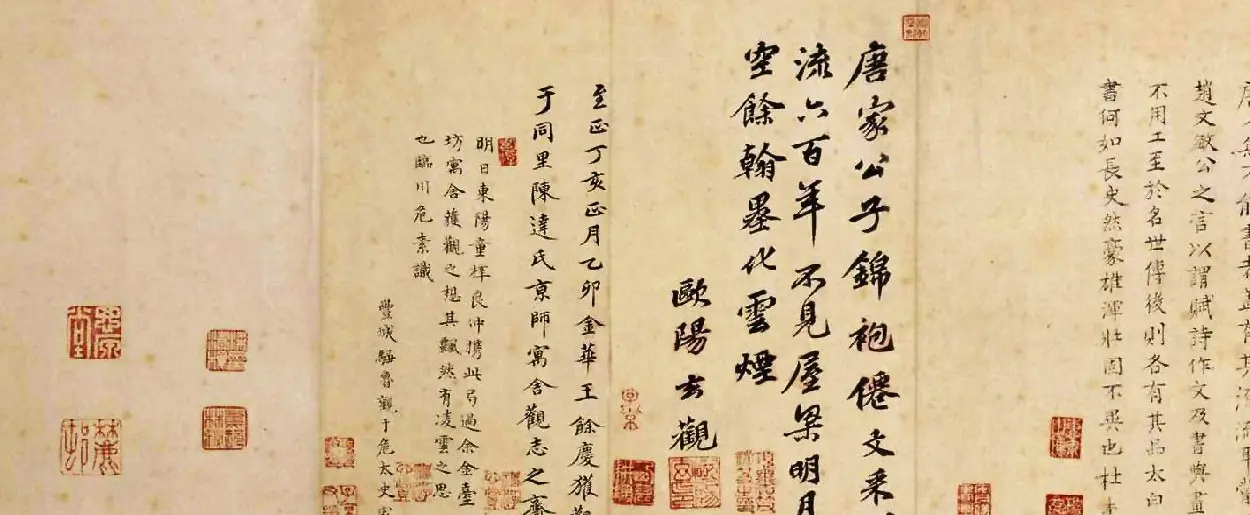 趙文敏公之言以謂賦詩作文及書與畫
不用工至於名世傳後則各有其品太白
書何如長史然豪雄渾壯固不異也杜
唐家公子錦袍僊文采
流六百年不見屋梁明月
空餘翰墨化雲煙
歐陽玄觀
至正丁亥正月乙卯金華王餘慶獲觀
于同里陳達氏京師寓舍觀志之齋
明日東陽童梓良仲攜此局過余金臺
坊寓舍獲觀之想其飄然有凌雲之思
也臨川危素識
豐城騶魯觀于危太史